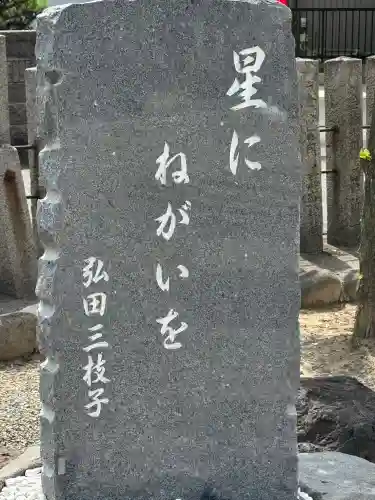 星に
ねがいを
弘田三枝子